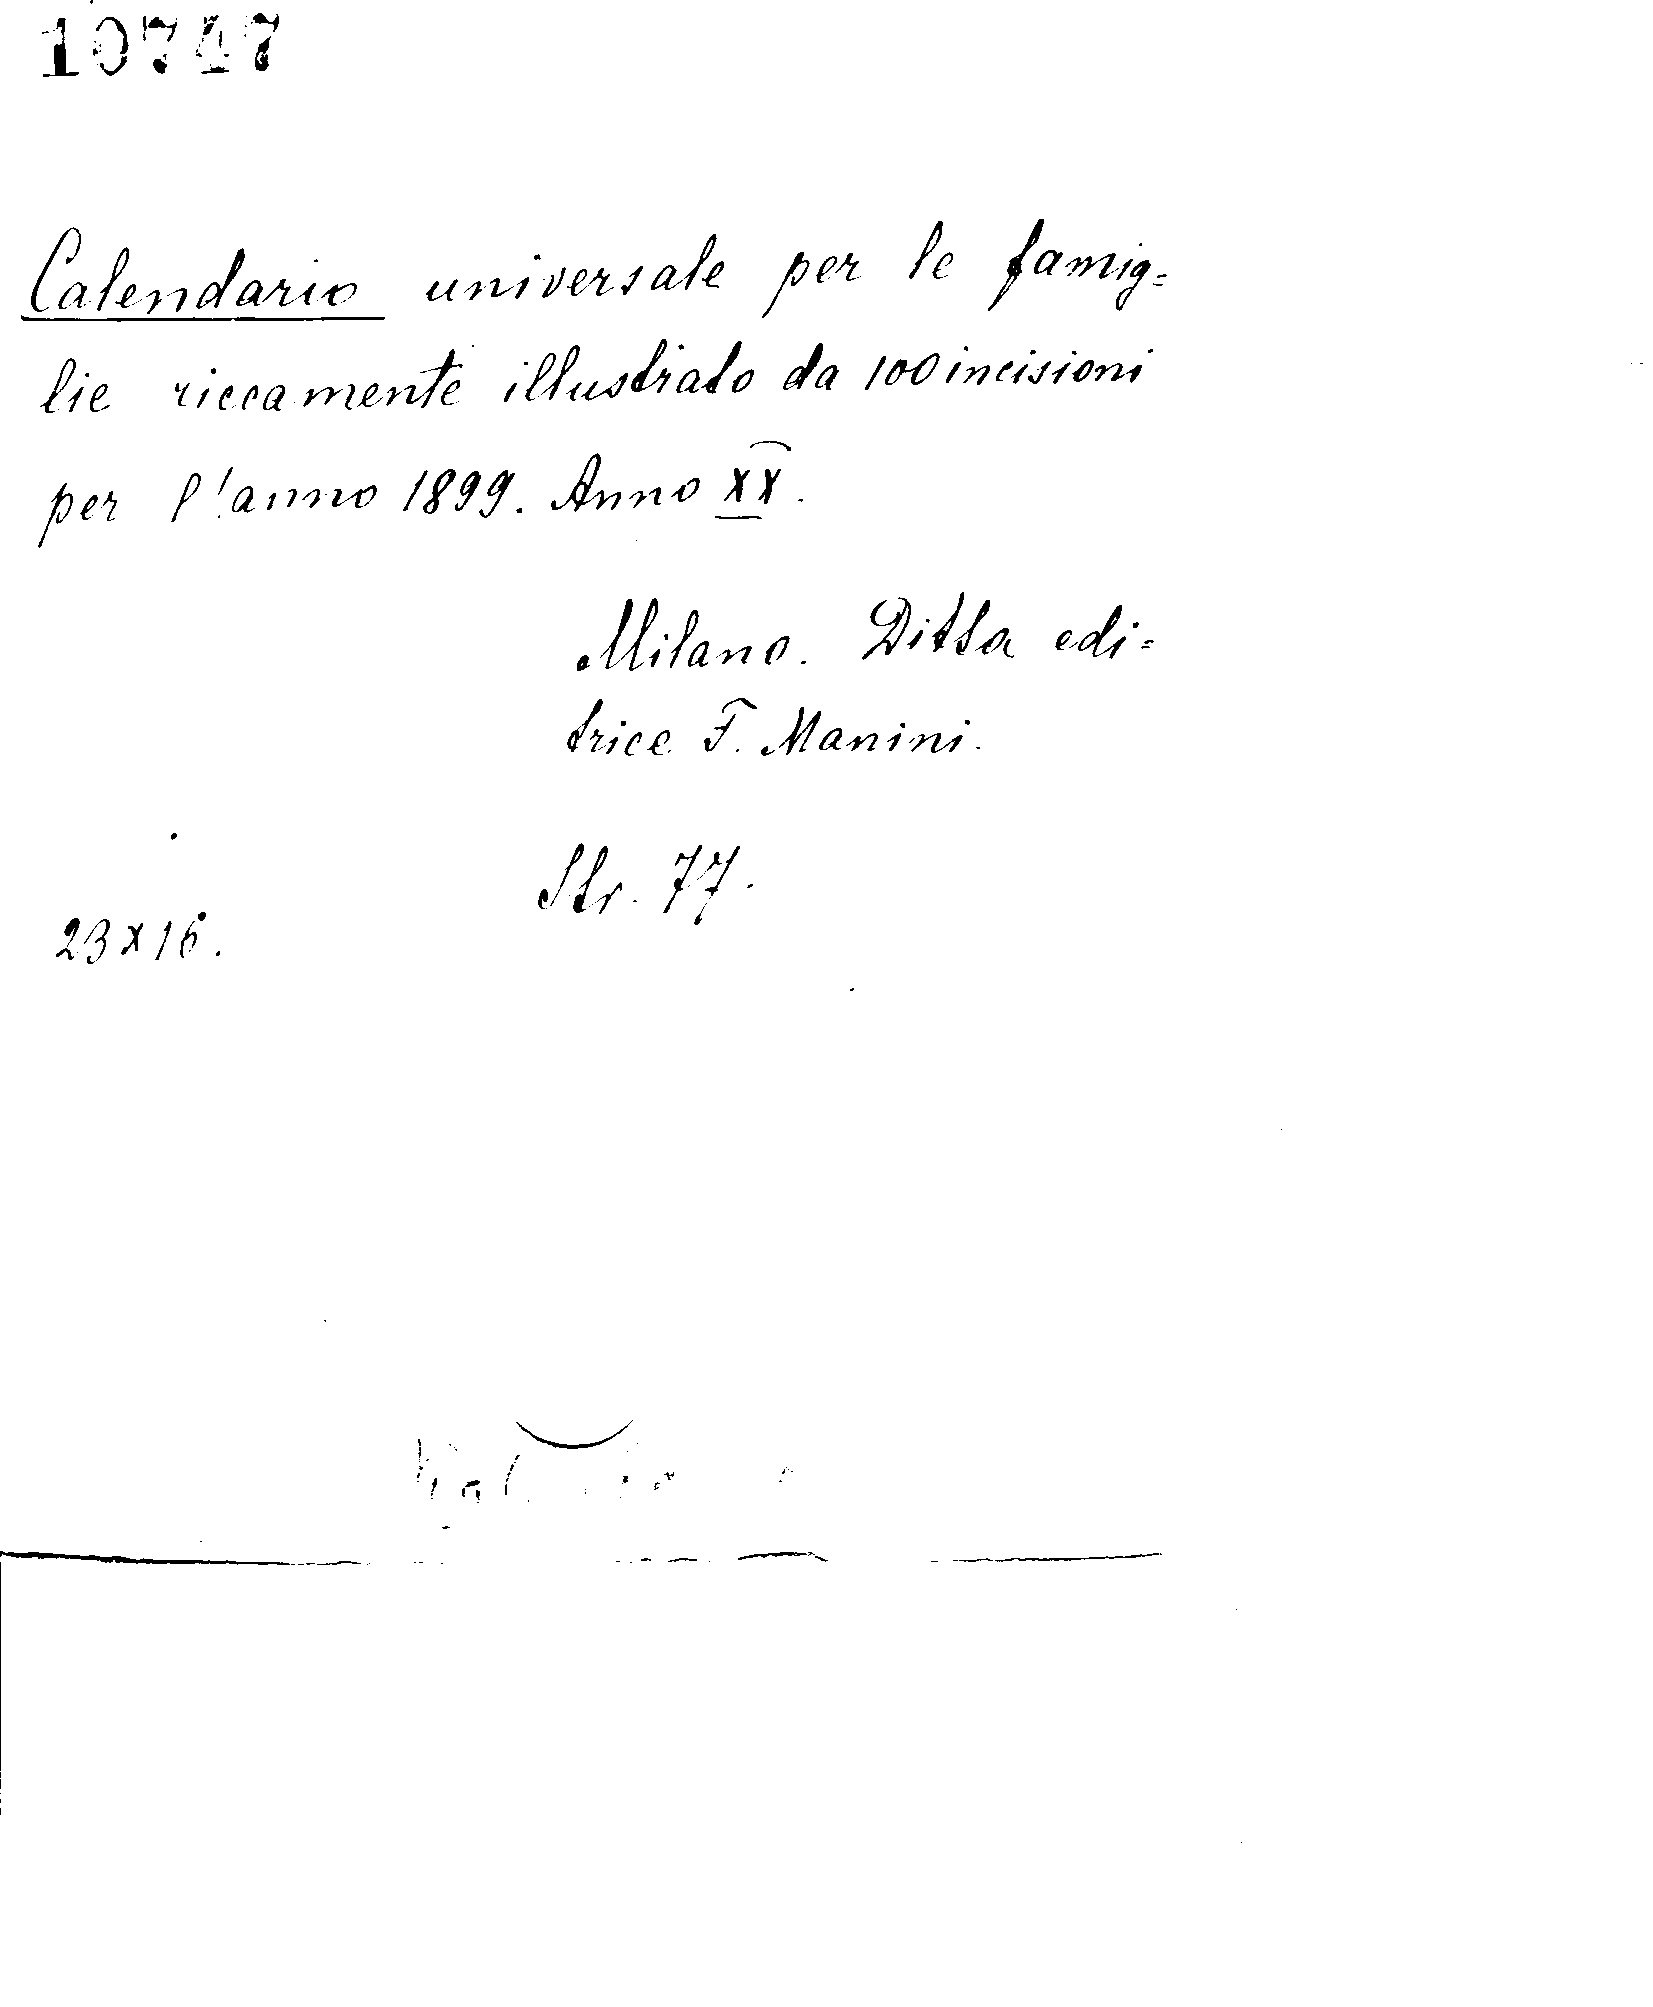 10747
Calendario universale per le famig=
lie riccamente illustrato da 100 incisioni
per l'anno 1899. Anno XX.
Milano. Ditta edi=
trice F. Manini.
Str. 77.
23x16.